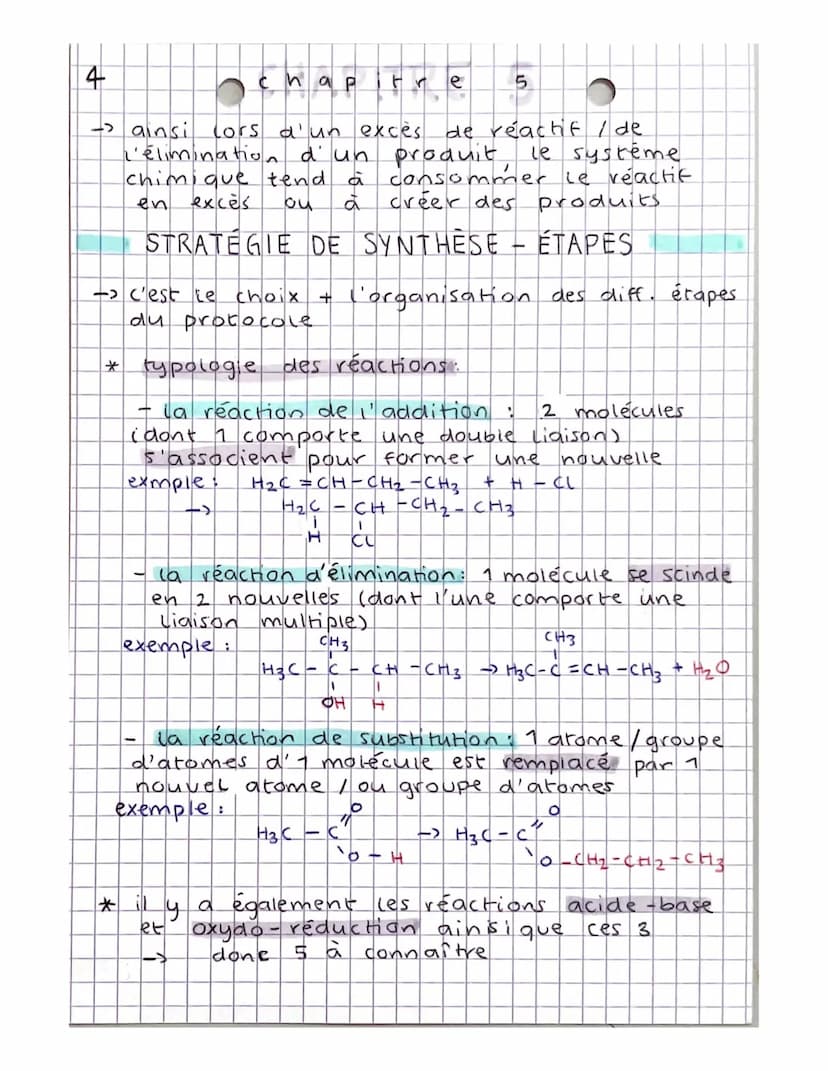 4 chapitre 5
-> ainsi lors d'un excès de réactif / de
l'élimination d'un produit, le système
chimique tend à consommer le réactif
en excès ou à créer des produits
STRATÉGIE DE SYNTHÈSE - ÉTAPES
-> c'est le choix + l'organisation des diff. étapes
du protocole
* typologie des réactions :
- la réaction de l'addition : 2 molécules
(dont 1 comporte une double liaison)
s'associent pour former une nouvelle
exmple : H2C = CH - CH2 - CH3 + H - Cl
-> H2C - CH - CH2 - CH3
H Cl
- la réaction d'élimination : 1 molécule se scinde
en 2 nouvelles (dont l'une comporte une
liaison multiple)
exemple : CH3 CH3
H3C - C - CH - CH3 -> H3C - C = CH - CH3 + H2O
OH H
- la réaction de substitution : 1 atome / groupe
d'atomes d'1 molécule est remplacé par 1
nouvel atome / ou groupe d'atomes
exemple : O O
H3C - C -> H3C - C
O - H O - CH2 - CH2 - CH3
* il y a également les réactions acide-base
et oxydo-réduction ainsi que ces 3
-> donc 5 à connaître